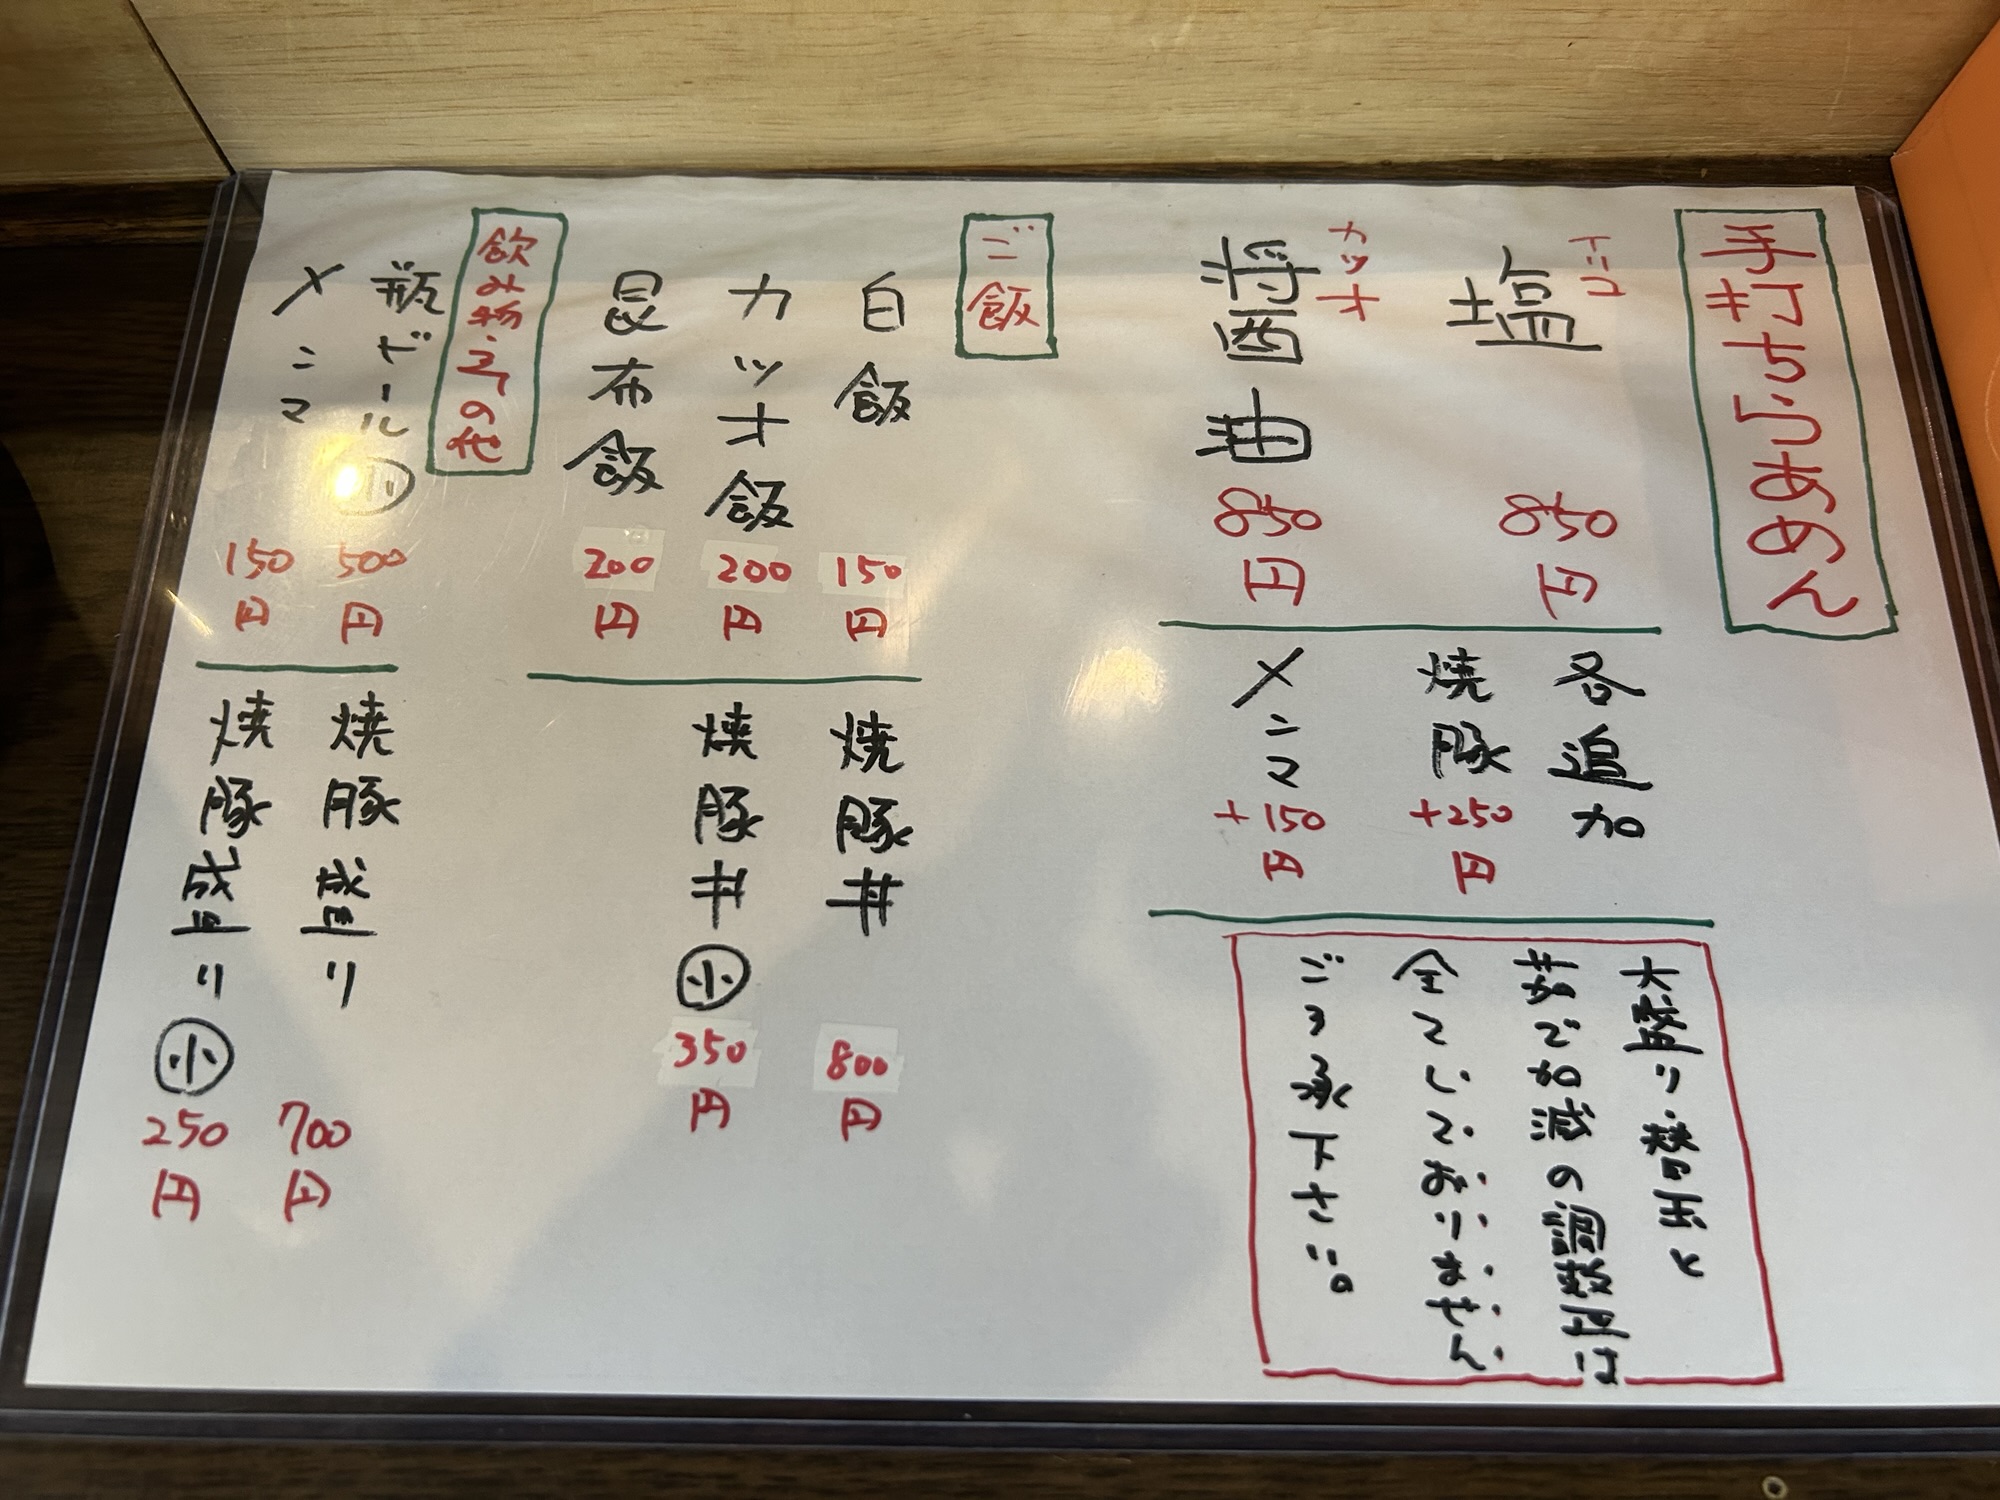 手打ちらあめん
トリコ
塩 850円
カツオ
醤油 850円
各追加
焼豚 +250円
メンマ +150円
大盛り・替玉と
茹で加減の調整は
全てしておりません
ご了承下さい。
ご飯
白飯 150円
カツオ飯 200円
昆布飯 200円
焼豚丼 800円
焼豚丼 小 350円
飲み物・その他
瓶ビール 小 500円
メンマ 150円
焼豚盛り 700円
焼豚盛り 小 250円